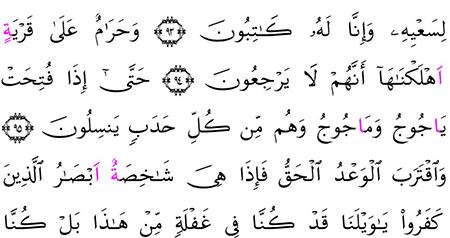 لِسَعْيِهِۦ وَإِنَّا لَهُۥ كَٰتِبُونَ ۝٩٣ وَحَرَامٌ عَلَىٰ قَرْيَةٍ
اَهْلَكْنَٰهَآ أَنَّهُمْ لَا يَرْجِعُونَ ۝٩٤ حَتَّىٰٓ إِذَا فُتِحَتْ
يَاجُوجُ وَمَاجُوجُ وَهُم مِّن كُلِّ حَدَبٍ يَنسِلُونَ ۝٩٥
وَٱقْتَرَبَ ٱلْوَعْدُ ٱلْحَقُّ فَإِذَا هِىَ شَٰخِصَةٌ اَبْصَٰرُ ٱلَّذِينَ
كَفَرُوا۟ يَٰوَيْلَنَا قَدْ كُنَّا فِى غَفْلَةٍ مِّنْ هَٰذَا بَلْ كُنَّا